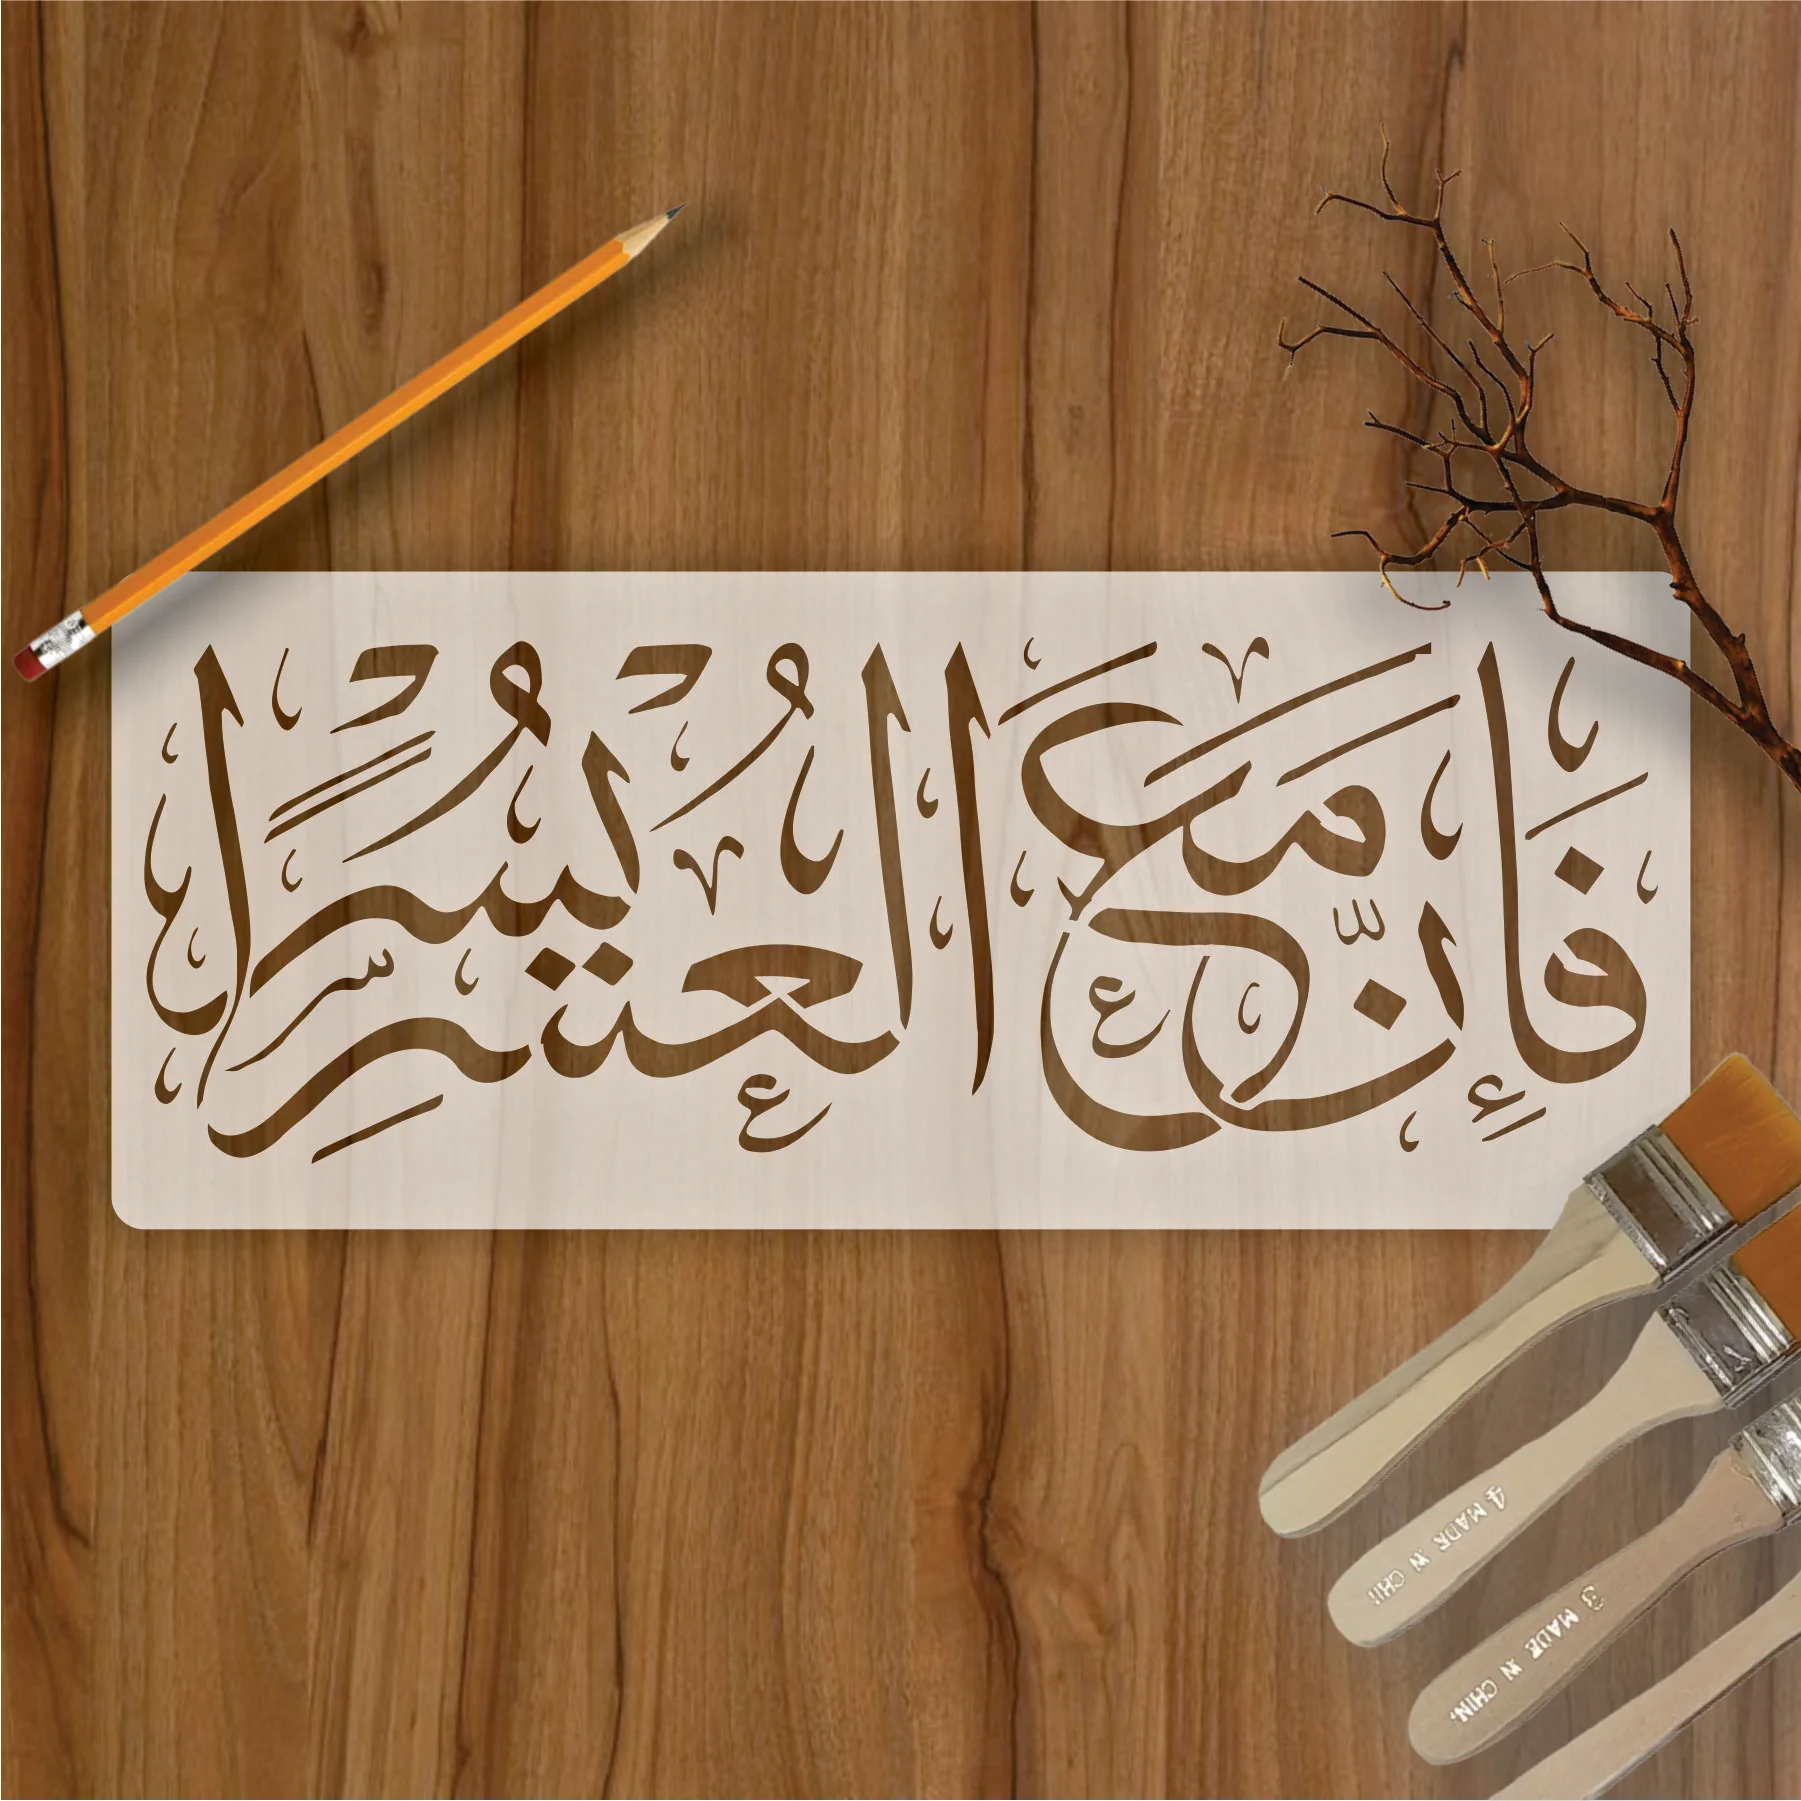 فَإِنَّ مَعَ الْعُسْرِ يُسْرًا
4 MADE IN CHI
3 MADE IN CHIN.